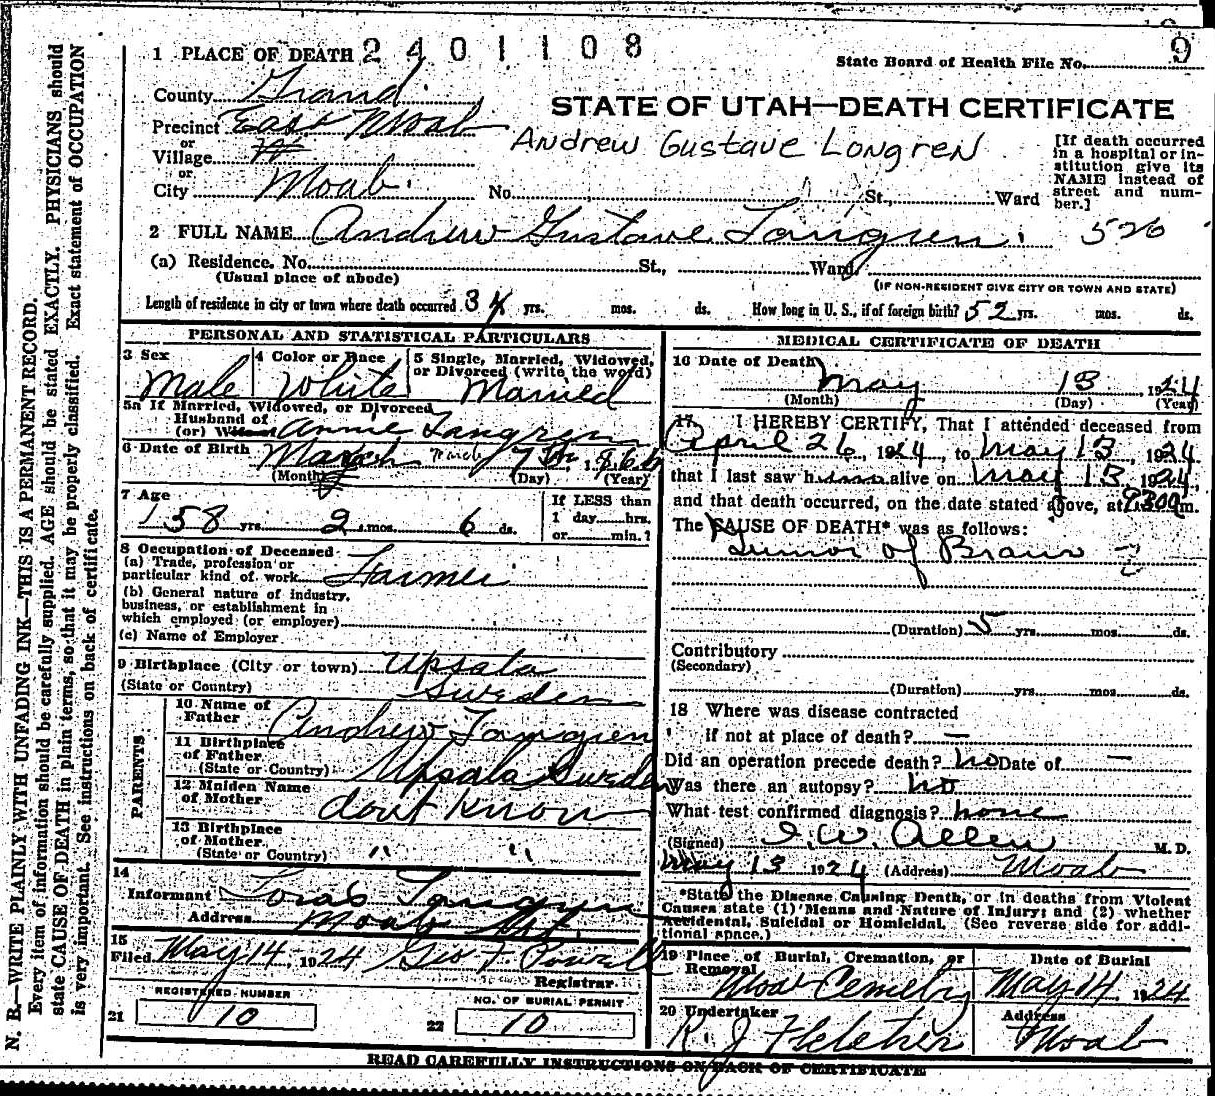 N. B.—WRITE PLAINLY WITH UNFADING INK—THIS IS A PERMANENT RECORD.
Every item of information should be carefully supplied. AGE should be stated EXACTLY. PHYSICIANS should
state CAUSE OF DEATH in plain terms, so that it may be properly classified. Exact statement of OCCUPATION
is very important. See instructions on back of certificate.
1 PLACE OF DEATH 2401108
State Board of Health File No. 9
County Grand
STATE OF UTAH—DEATH CERTIFICATE
Precinct East Moab
Andrew Gustave Longren
or
Village
or
City Moab. No. St., Ward
[If death occurred
in a hospital or in-
stitution give its
NAME instead of
street and num-
ber.]
2 FULL NAME Andrew Gustave Longren. 526
(a) Residence. No. St., Ward,
(Usual place of abode)
(IF NON-RESIDENT GIVE CITY OR TOWN AND STATE)
Length of residence in city or town where death occurred 34 yrs. mos. ds. How long in U. S., if of foreign birth? 52 yrs. mos. ds.
PERSONAL AND STATISTICAL PARTICULARS
3 Sex
Male
4 Color or Race
White
5 Single, Married, Widowed,
or Divorced (write the word)
Married
5a If Married, Widowed, or Divorced
Husband of
(or) Annie Longren
6 Date of Birth March March 7th
(Month) (Day) (Year)
7 Age
58 yrs. 2 mos. 6 ds.
If LESS than
1 day hrs.
or min.?
8 Occupation of Deceased
(a) Trade, profession or
particular kind of work Farmer
(b) General nature of industry,
business, or establishment in
which employed (or employer)
(c) Name of Employer
9 Birthplace (City or town) Upsala
(State or Country) Sweden
PARENTS
10 Name of
Father Andrew Longren
11 Birthplace
of Father
(State or Country) Upsala Sweden
12 Maiden Name
of Mother dont know
13 Birthplace
of Mother
(State or Country) " "
14
Informant Longren
Address Moab Ut.
15
Filed May 14, 1924 Geo. F. Powell
Registrar.
REGISTERED NUMBER
21 10
NO. OF BURIAL PERMIT
22 10
MEDICAL CERTIFICATE OF DEATH
16 Date of Death May 13, 1924
(Month) (Day) (Year)
17 I HEREBY CERTIFY, That I attended deceased from
April 26, 1924, to May 13, 1924,
that I last saw him alive on May 13 1924,
and that death occurred, on the date stated above, at m.
The CAUSE OF DEATH* was as follows:
Tumor of Brain
(Duration) 5 yrs. mos. ds.
Contributory
(Secondary)
(Duration) yrs. mos. ds.
18 Where was disease contracted
if not at place of death? —
Did an operation precede death? no Date of —
Was there an autopsy? no
What test confirmed diagnosis? none
(Signed) I. W. Allen M. D.
May 13 1924 (Address) Moab
*State the Disease Causing Death, or in deaths from Violent
Causes state (1) Means and Nature of Injury; and (2) whether
Accidental, Suicidal or Homicidal. (See reverse side for addi-
tional space.)
19 Place of Burial, Cremation, or
Removal
Moab Cemetery
Date of Burial
May 14 1924
20 Undertaker
R. J. Fletcher
Address
Moab
READ CAREFULLY INSTRUCTIONS ON BACK OF CERTIFICATE